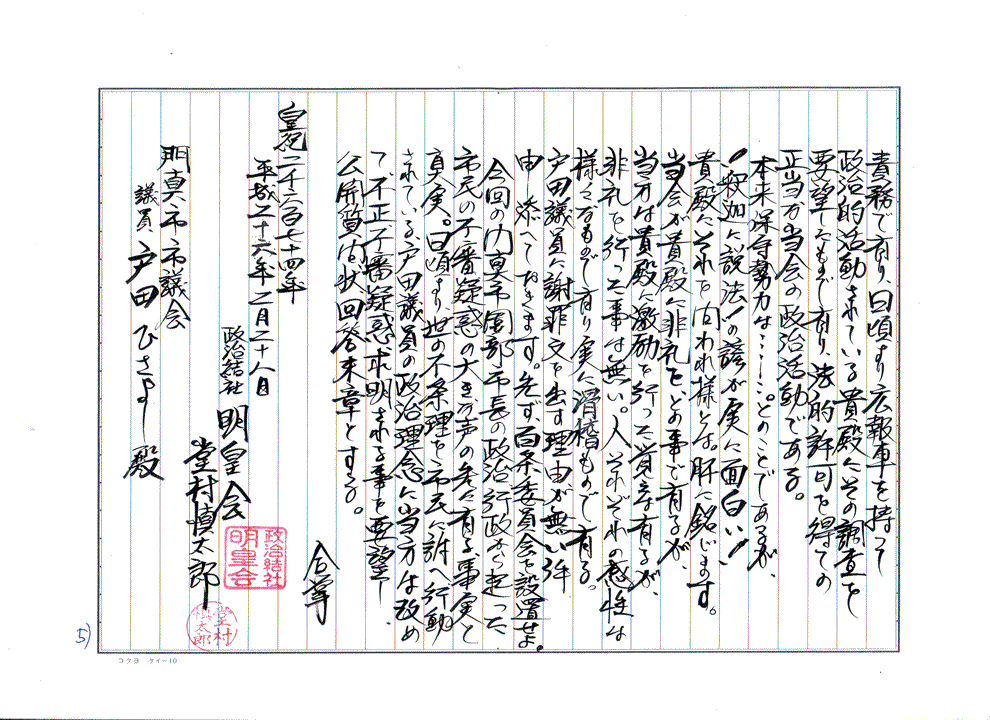 責務で有り、日頃より広報車を持って
政治的活動されている貴殿にその調査を
要望するもので有り、法的許可を得ての
正当な当会の政治活動である。
本来保守勢力は……とのことであるが、
「釈迦に説法」の諺が実に面白い!
貴殿にそれを問われ様とは。肝に銘じます。
当会が貴殿に非礼をどの事で有るが、
当方は貴殿に激励を行った覚えは有るが、
非礼を行った事は無い。人それぞれの感性は
様々なもので有り実に滑稽もので有る。
戸田議員に謝罪文を出す理由が無い
由 添へておきます。先ず百条委員会を設置せよ。
今回の門真市園部市長の政治行政から起った
市民の不審疑惑の大きな声の先に有る事実と
真実。日頃より世の不条理を市民に訴へ行動
されている戸田議員の政治理念に当方は改め
て不正不審疑惑求明される事を要望し
公開質問状回答来章とする。
合掌
皇紀二千六百七十四年
平成二十六年二月二十八日
政治結社 明皇会
堂村慎太郎
政治結社
明皇会
堂村
慎太郎
門真市市議会
議員 戸田ひさよし殿
5)
コクヨ ケイー10